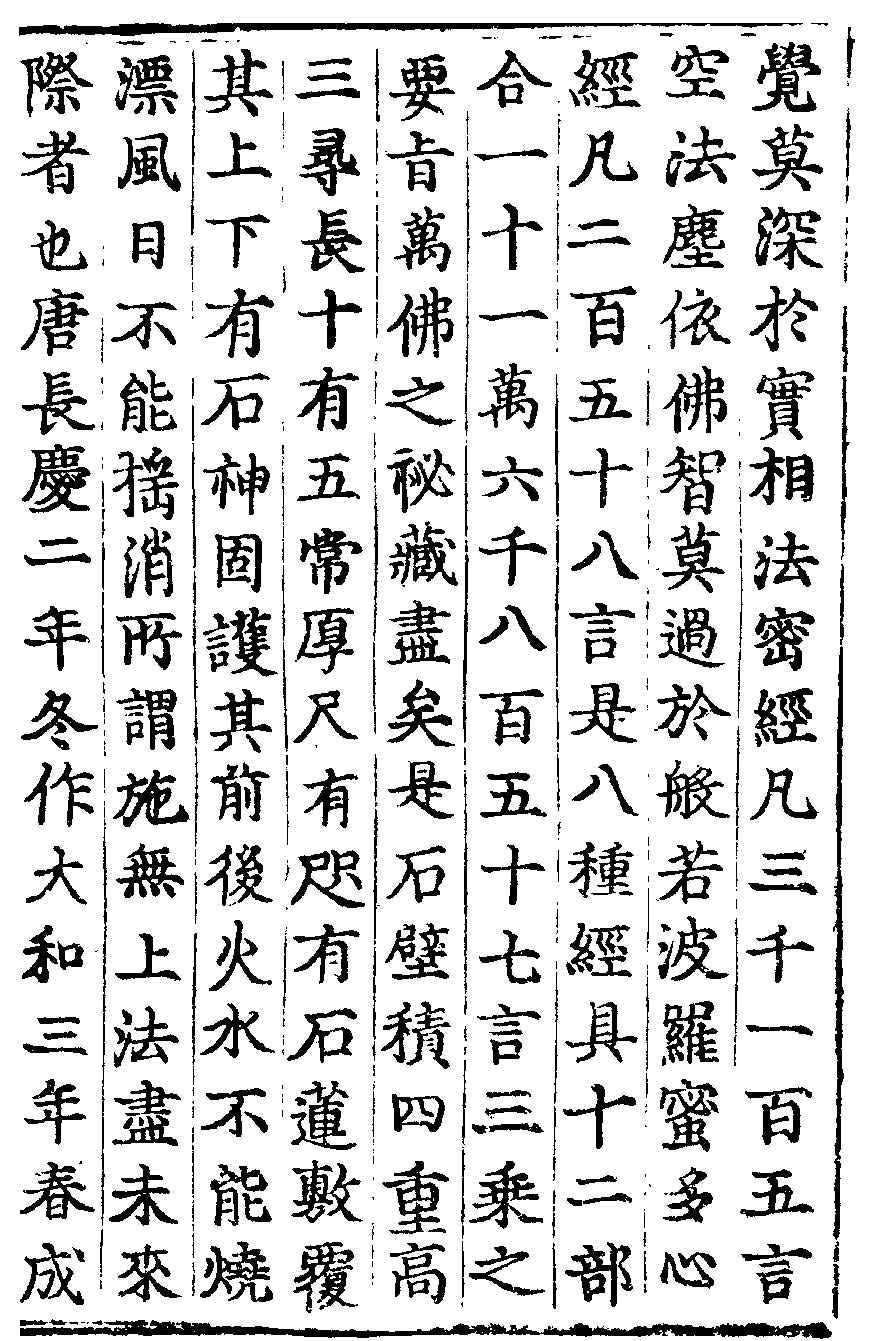 覺莫深於實相法密經凡三千一百五言
空法塵依佛智莫過於般若波羅蜜多心
經凡二百五十八言是八種經具十二部
合一十一萬六千八百五十七言三乗之
要旨萬佛之祕藏盡矣是石壁積四重高
三尋長十有五常厚尺有咫有石蓮敷覆
其上下有石神固護其前後火水不能燒
漂風日不能揺消所謂施無上法盡未來
際者也唐長慶二年冬作大和三年春成